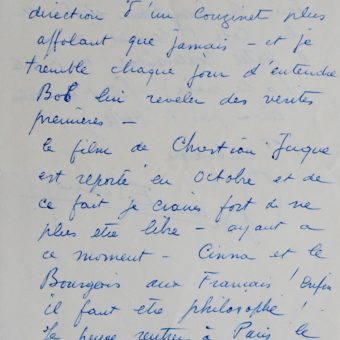 direction d'un Couzinet plus
affolant que jamais - et je
tremble chaque jour d'entendre
Bob lui reveler des verites
premieres -
le film de Chrstion Jaque
est reporté en Octobre et de
ce fait je crains fort de ne
plus etre libre - ayant a
ce moment - Cinna et le
Bourgeois aux Français ! Enfin
il faut etre philosophe !
Je pense rentrer à Paris le